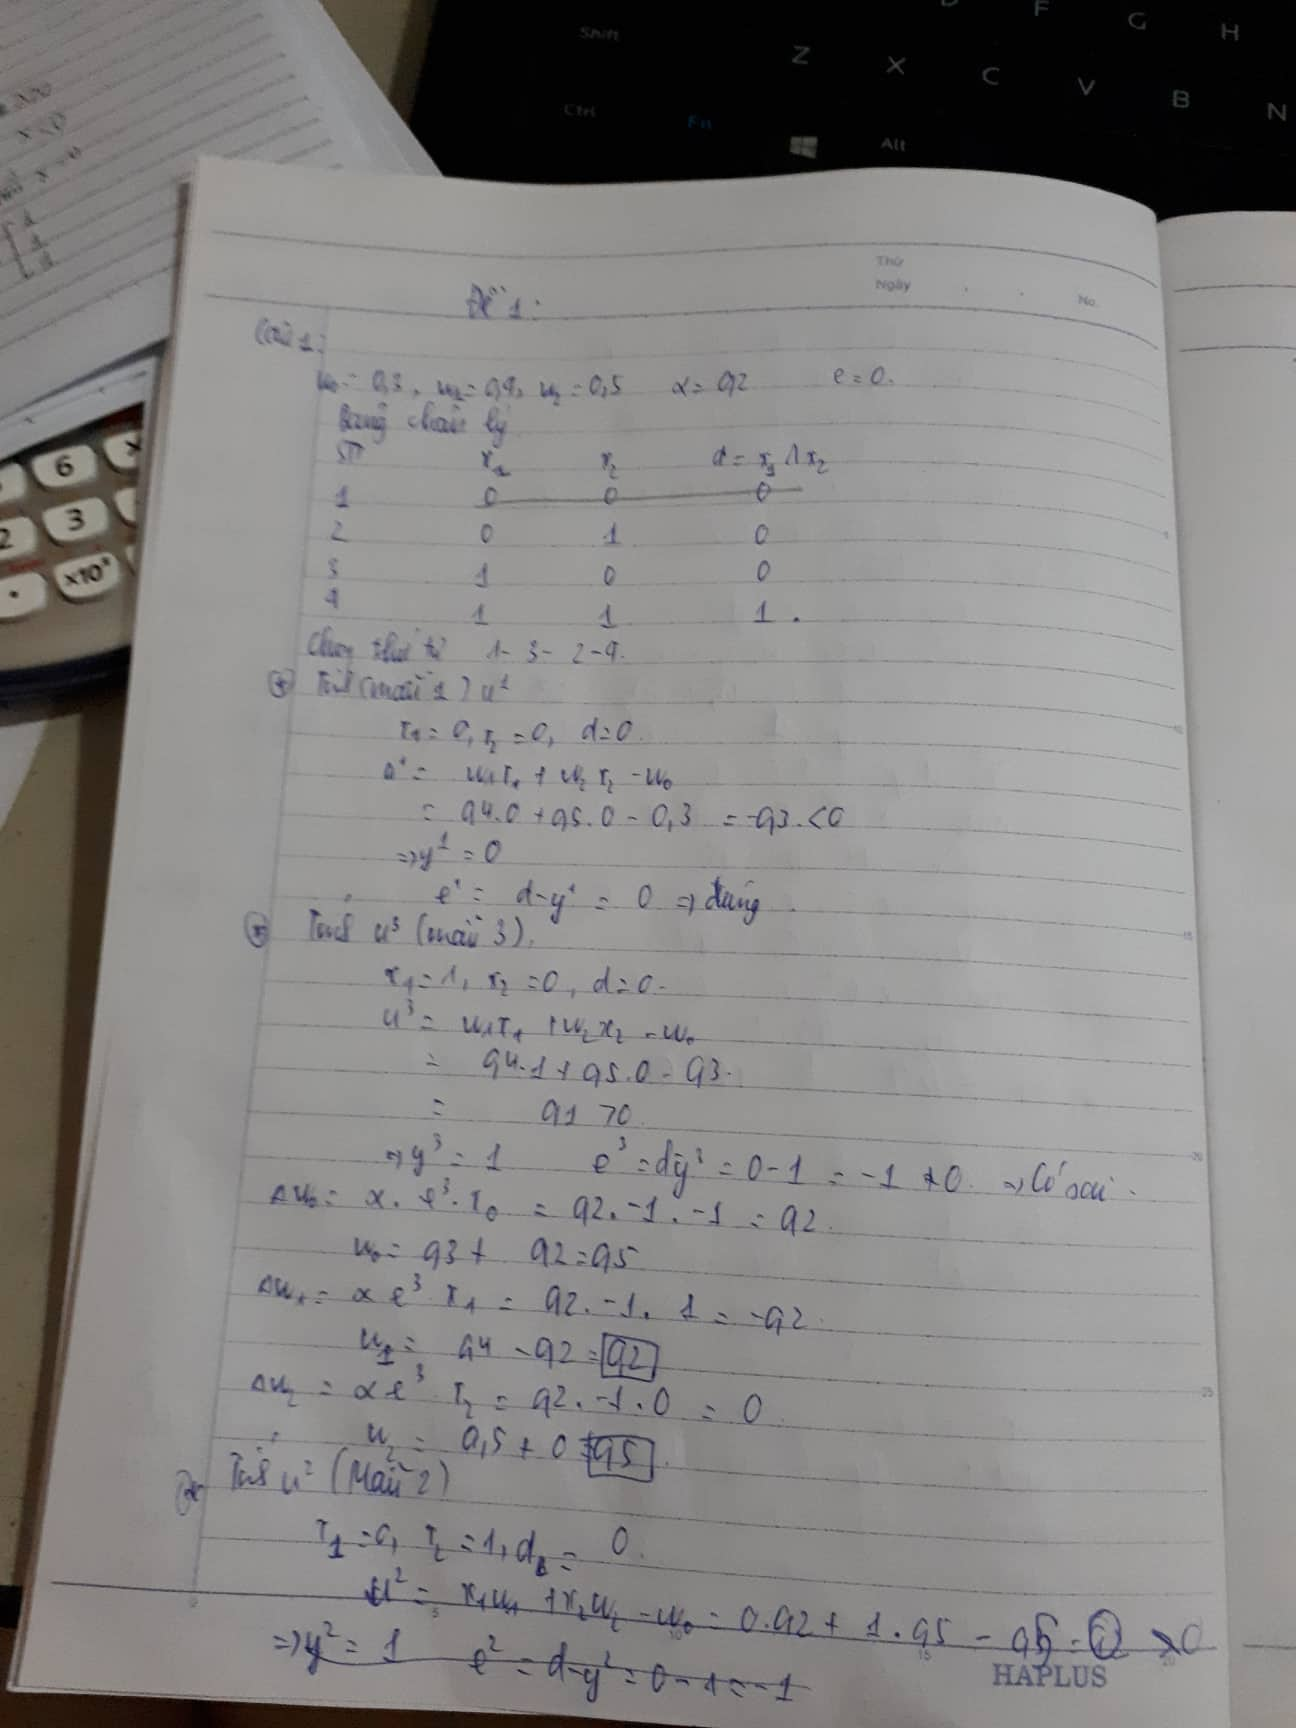 Shift
Z X C V B N
D F G H
Ctrl Fn Alt
6
2 3
x10ˣ
Thứ
Ngày
No.
Đề 1:
Câu 1:
w₀ = 0,3, w₁ = 0,4, w₂ = 0,5 α = 0,2 e = 0.
Bảng chân lý
STT x₁ x₂ d = x₁ Λ x₂
1 0 0 0
2 0 1 0
3 1 0 0
4 1 1 1.
Chọn thứ tự 1-3-2-4.
* Tính (mẫu 1) u¹
x₁ = 0, x₂ = 0, d = 0.
u¹ = w₁x₁ + w₂x₂ - w₀
= 0,4.0 + 0,5.0 - 0,3 = -0,3 < 0
=> y¹ = 0
e¹ = d - y¹ = 0 => đúng.
* Tính u³ (mẫu 3).
x₁ = 1, x₂ = 0, d = 0.
u³ = w₁x₁ + w₂x₂ - w₀
= 0,4.1 + 0,5.0 - 0,3.
= 0,1 > 0.
=> y³ = 1 e³ = d-y³ = 0 - 1 = -1 ≠ 0. => Có sai.
Δw₀ = α. e³. x₀ = 0,2. -1. -1 = 0,2.
w₀ = 0,3 + 0,2 = 0,5
Δw₁ = α e³ x₁ = 0,2. -1. 1 = -0,2.
w₁ = 0,4 - 0,2 = 0,2
Δw₂ = α e³ x₂ = 0,2. -1. 0 = 0.
w₂ = 0,5 + 0 = 0,5.
* Tính u² (Mẫu 2)
x₁ = 0, x₂ = 1, d = 0.
u² = x₁w₁ + x₂w₂ - w₀ = 0.0,2 + 1.0,5 - 0,5 = 0
=> y² = 1 e² = d - y² = 0 - 1 = -1
HAPLUS